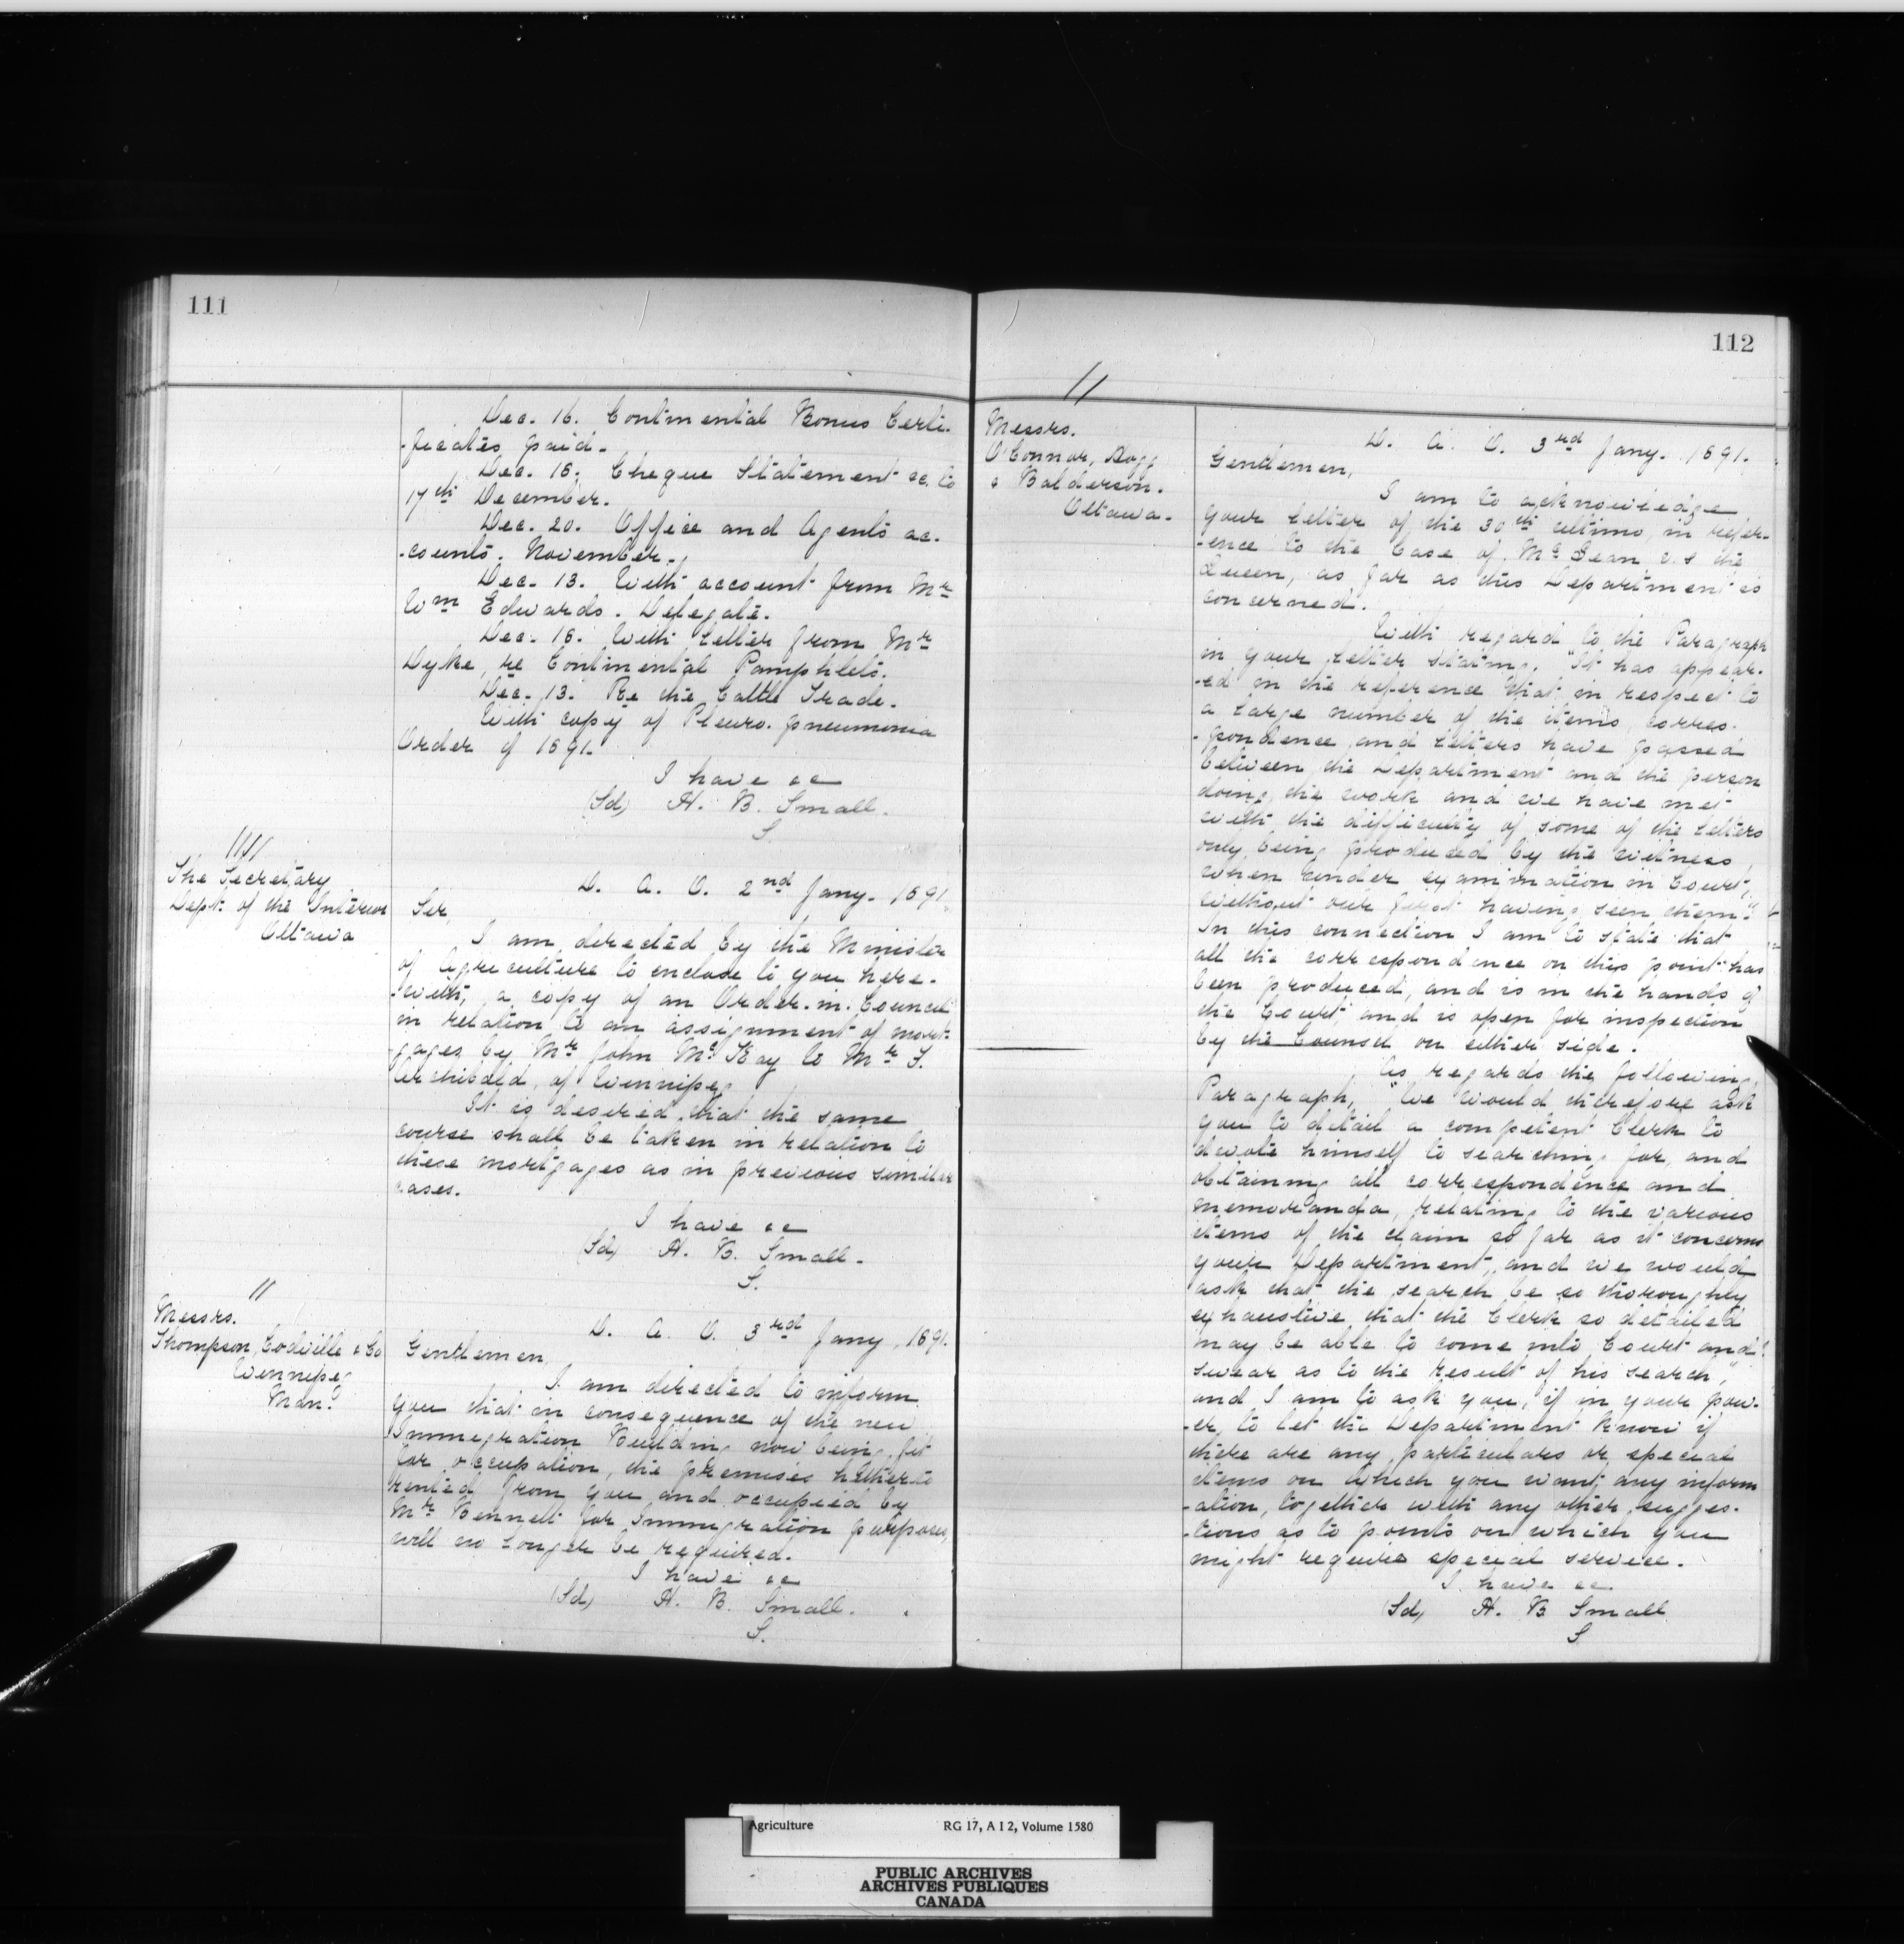 111
Dec. 16. Continental Bonus Certi-
-ficates paid.
Dec. 16. Cheque Statement &c. to
17th December.
Dec. 20. Office and Agents ac-
-counts. November.
Dec. 13. With account from Mr
Wm Edwards. Delegate.
Dec. 16. With Letter from Mr
Dyke, re Continental Pamphlets.
Dec. 13. Re the Cattle Trade.
With copy of Pleuro-pneumonia
Order of 1891.
I have &c
(Sd) H. B. Small.
S.
The Secretary
Dept. of the Interior
Ottawa
D. A. O. 2nd Jany. 1891.
Sir,
I am directed by the Minister
of Agriculture to enclose to you here-
-with, a copy of an Order-in-Council
in relation to an assignment of mort-
-gages by Mr John McKay to Mr T.
Archibald, of Winnipeg
It is desired that the same
course shall be taken in relation to
these mortgages as in previous similar
cases.
I have &c
(Sd) H. B. Small.
S.
Messrs.
Thompson, Codville & Co
Winnipeg
Man:
D. A. O. 3rd Jany, 1891.
Gentlemen,
I am directed to inform
you that in consequence of the new
Immigration Building now being fit
for occupation, the premises hitherto
rented from you and occupied by
Mr Bennett for Immigration purposes,
will no longer be required.
I have &c
(Sd) H. B. Small.
S.
112
Messrs.
O'Connor, Hogg
& Balderson.
Ottawa.
D. A. O. 3rd Jany. 1891.
Gentlemen,
I am to acknowledge
your letter of the 30th ultimo, in refer-
-ence to the Case of McLean v.s the
Queen, as far as this Department is
concerned.
With regard to the Paragraph
in your letter stating, "It has appear-
-ed in the reference that in respect to
a large number of the items, corres-
-pondence and letters have passed
between the Department and the person
doing the work and we have met
with the difficulty of some of the letters
only being produced by the witness,
when under examination in Court,
without our first having seen them."
In this connection I am to state that
all the correspondence on this point has
been produced, and is in the hands of
the Court, and is open for inspection
by the Counsel on either side.
As regards the following
Paragraph, "We would therefore ask
you to detail a competent Clerk to
devote himself to searching for, and
obtaining all correspondence and
memoranda, relating to the various
items of the claim so far as it concerns
your Department, and we would
ask that the search be so thoroughly
exhaustive that the Clerk so detailed
may be able to come into Court and
swear as to the result of his search,"
and I am to ask you, if in your pow-
-er to let the Department know if
there are any particulars or special
items on which you want any inform
-ation, together with any other sugges-
-tions as to points on which you
might require special service.
I have &c
(Sd) H. B Small
S
Agriculture RG 17, A I 2, Volume 1580
PUBLIC ARCHIVES
ARCHIVES PUBLIQUES
CANADA